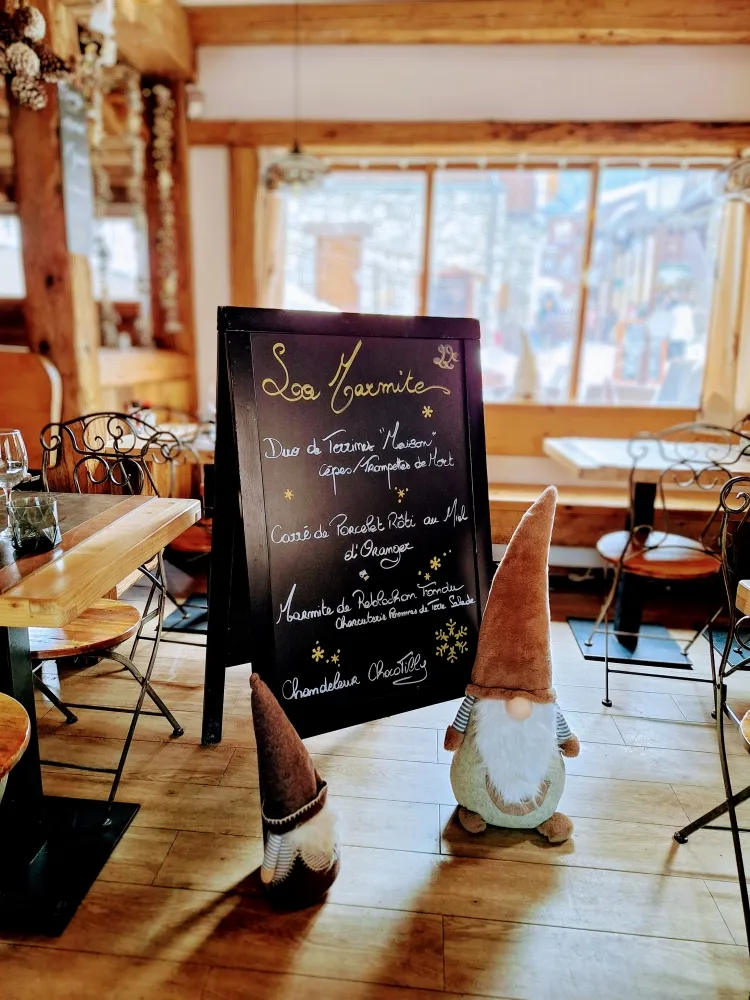 La Marmite
Duo de Terrines "Maison"
Cèpes/Trompettes de Mort
Carré de Porcelet Rôti au Miel
d'Oranger
Marmite de Reblochon Fondu
Charcuterie Pommes de Terre Salade
Chandeleur ChocoTilly